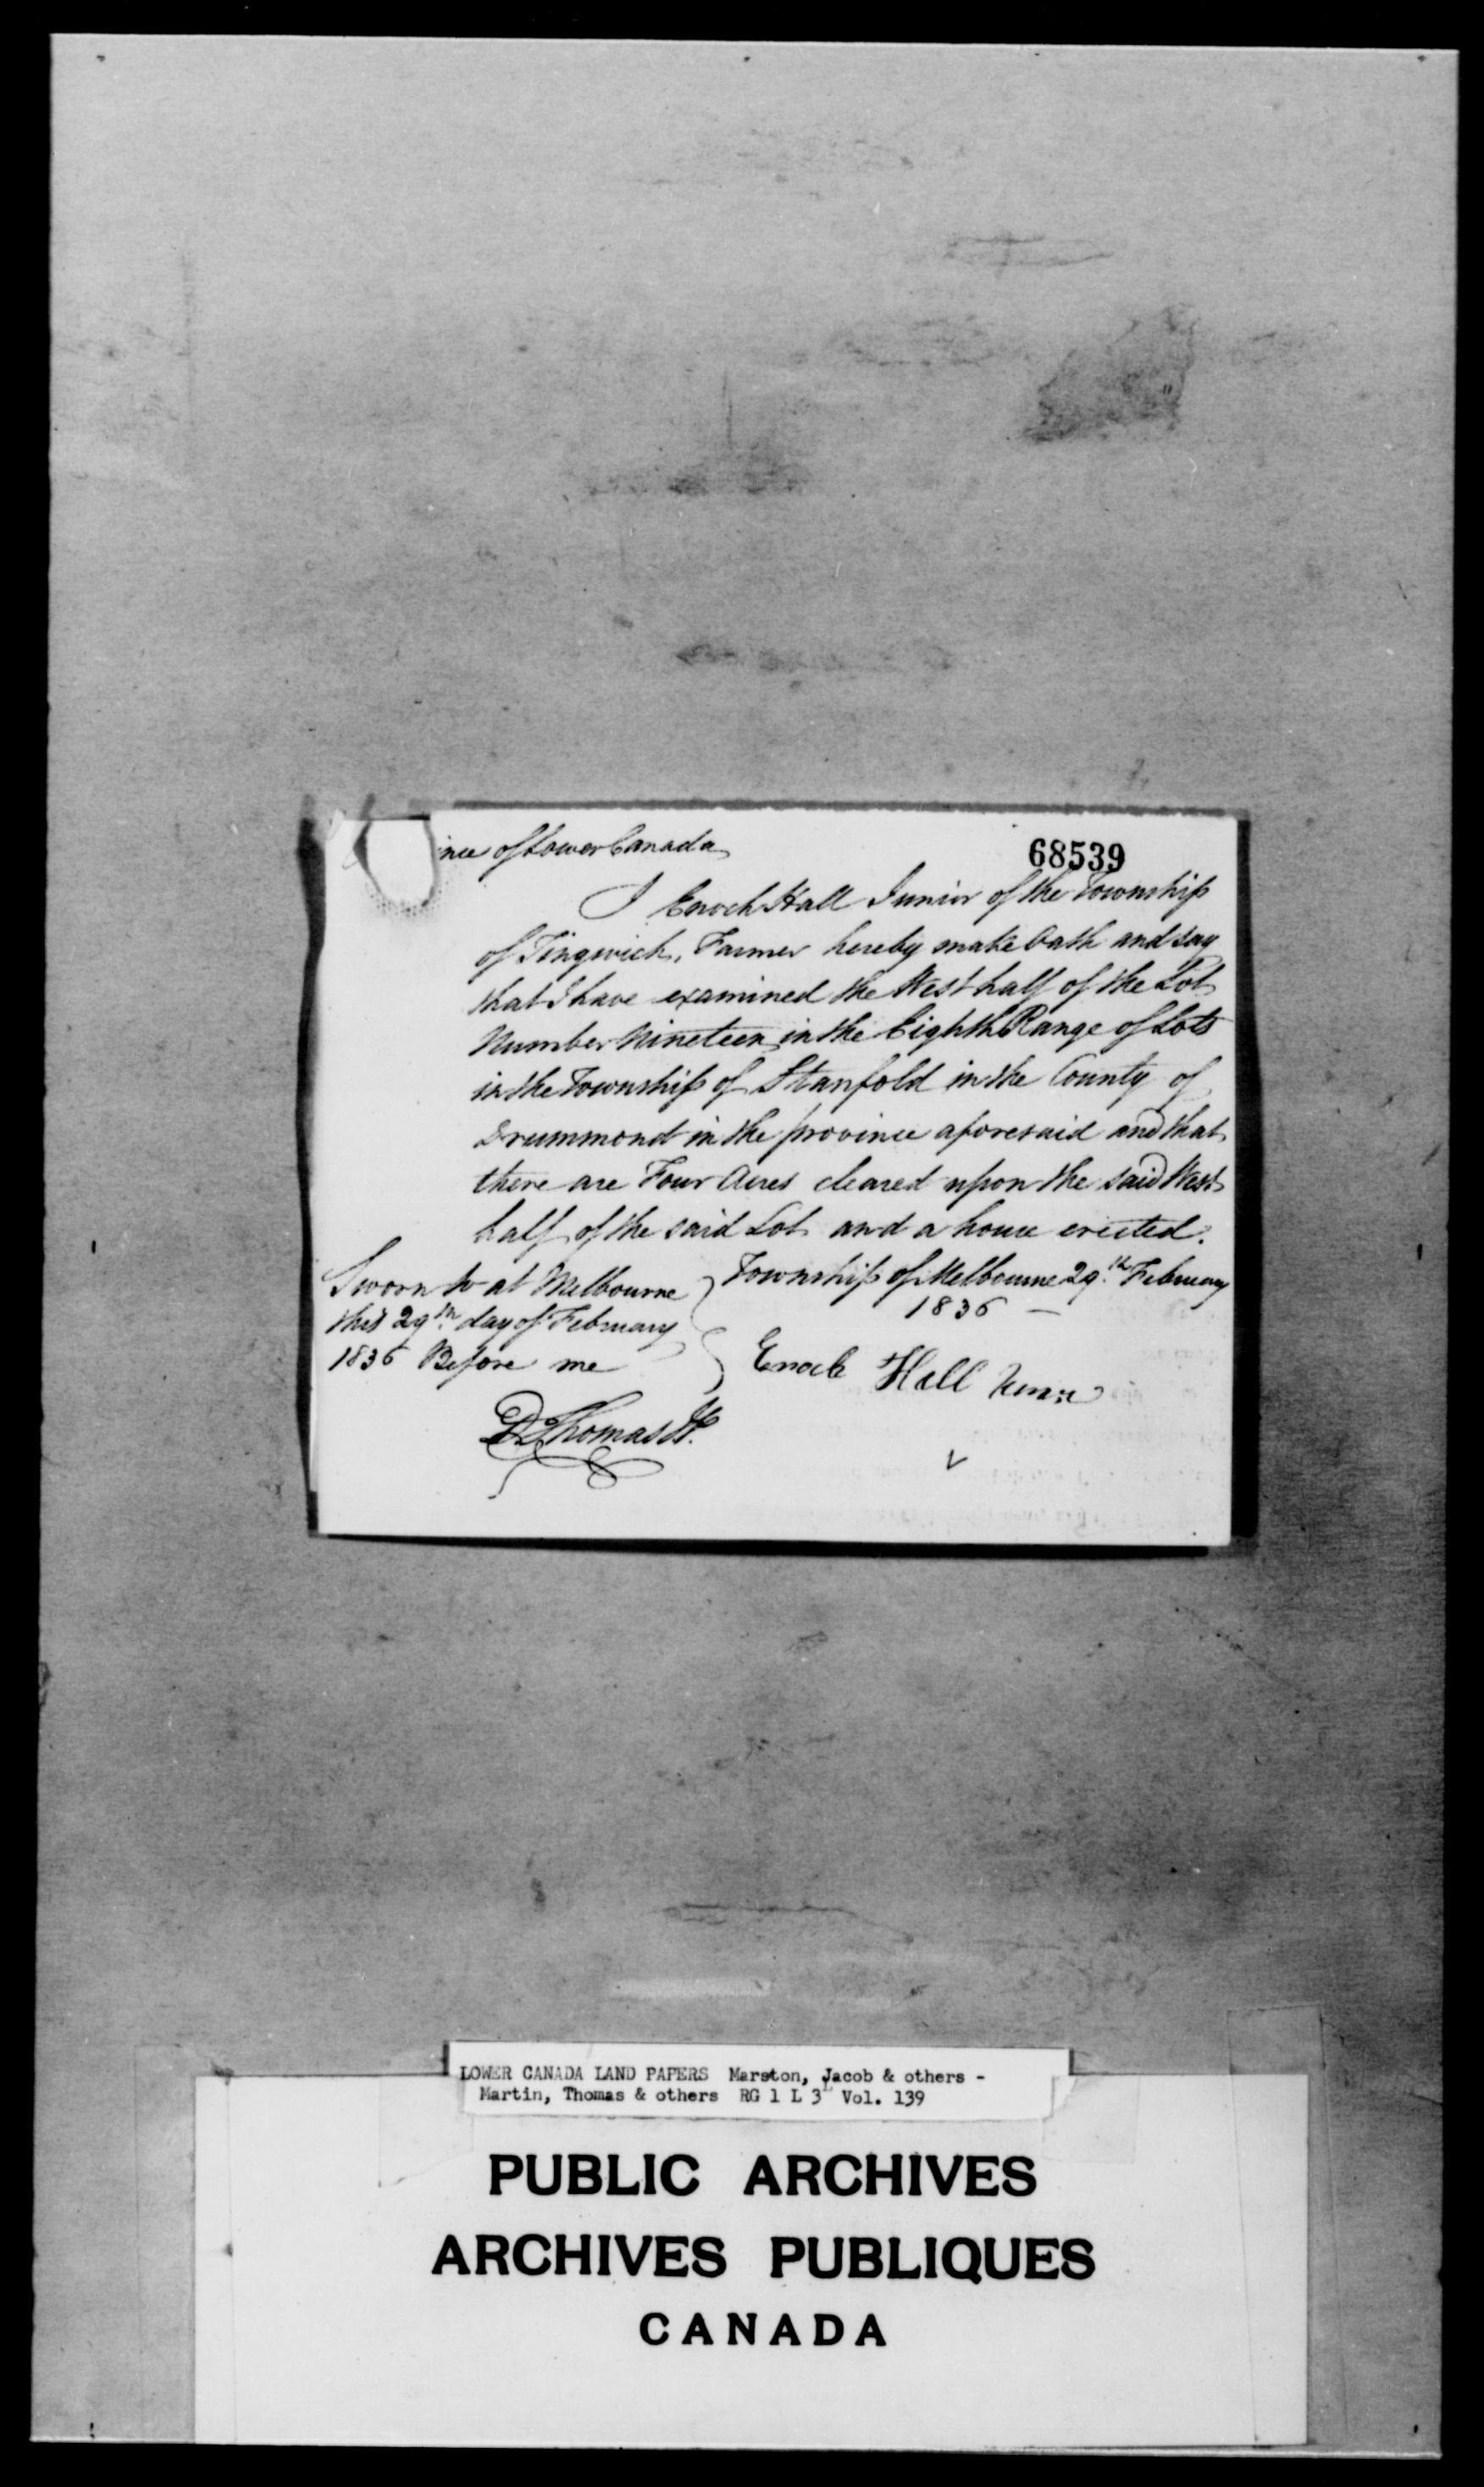 ince of Lower Canada
68539
I Enoch Hall Junior of the Township
of Tingwich, Farmer hereby make Oath and say
that I have examined the West half of the Lot
Number Nineteen in the Eighth Range of Lots
in the Township of Stanfold in the County of
Drummond in the province aforesaid and that
there are Four Acres cleared upon the said West
half of the said Lot and a house erected.
Township of Melbourne 29th February
1836 —
Sworn to at Melbourne
this 29th day of February
1836 Before me
Enoch Hall
D Thomas JP.
LOWER CANADA LAND PAPERS Marston, Jacob & others -
Martin, Thomas & others RG 1 L 3L Vol. 139
PUBLIC ARCHIVES
ARCHIVES PUBLIQUES
CANADA